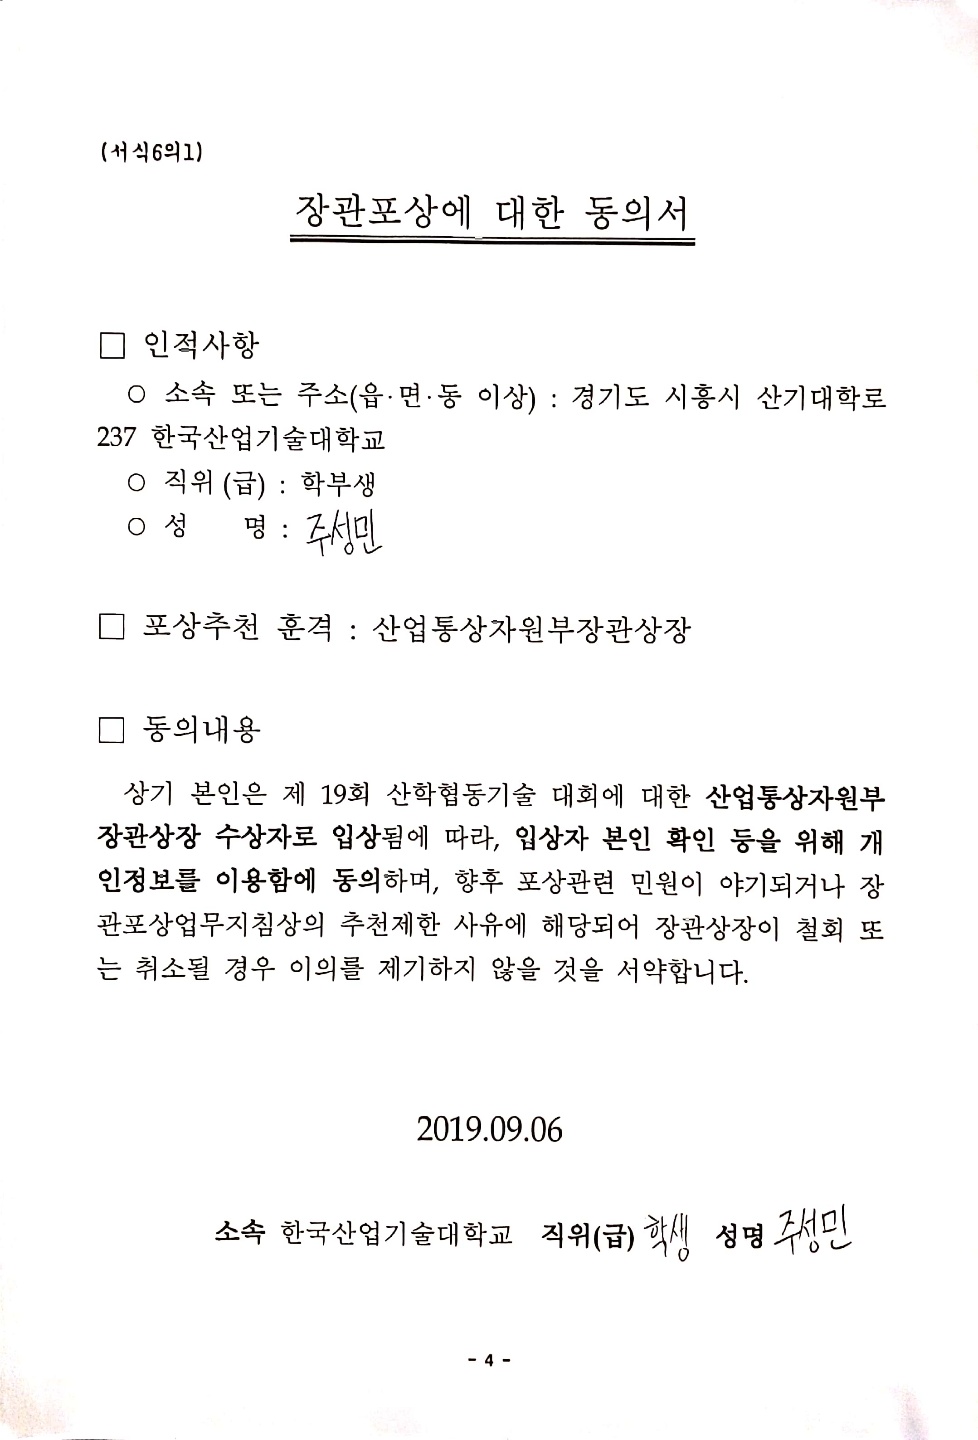 (서식6의1)
장관포상에 대한 동의서
□ 인적사항
○ 소속 또는 주소(읍·면·동 이상) : 경기도 시흥시 산기대학로
237 한국산업기술대학교
○ 직위(급) : 학부생
○ 성 명 : 주성민
□ 포상추천 훈격 : 산업통상자원부장관상장
□ 동의내용
상기 본인은 제 19회 산학협동기술 대회에 대한 산업통상자원부
장관상장 수상자로 입상됨에 따라, 입상자 본인 확인 등을 위해 개
인정보를 이용함에 동의하며, 향후 포상관련 민원이 야기되거나 장
관포상업무지침상의 추천제한 사유에 해당되어 장관상장이 철회 또
는 취소될 경우 이의를 제기하지 않을 것을 서약합니다.
2019.09.06
소속 한국산업기술대학교 직위(급) 학생 성명 주성민
- 4 -